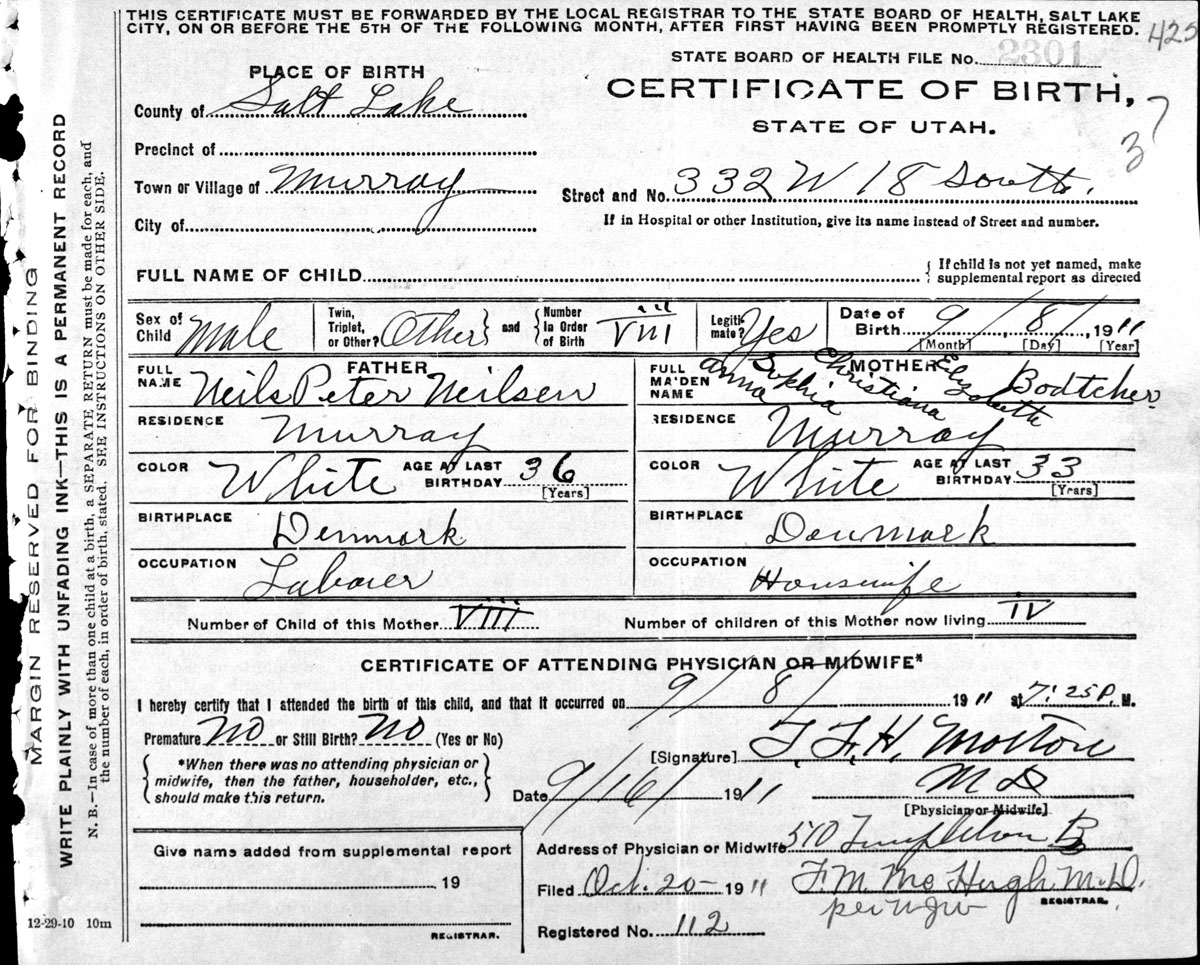 THIS CERTIFICATE MUST BE FORWARDED BY THE LOCAL REGISTRAR TO THE STATE BOARD OF HEALTH, SALT LAKE
CITY, ON OR BEFORE THE 5TH OF THE FOLLOWING MONTH, AFTER FIRST HAVING BEEN PROMPTLY REGISTERED. 425
STATE BOARD OF HEALTH FILE No. 2301
PLACE OF BIRTH
CERTIFICATE OF BIRTH,
County of Salt Lake
STATE OF UTAH.
37
Precinct of
Town or Village of Murray
Street and No. 332 W 18 South.
City of
If in Hospital or other Institution, give its name instead of Street and number.
FULL NAME OF CHILD
{ If child is not yet named, make
supplemental report as directed
Sex of Child Male
Twin, Triplet, or Other? Other } and { Number In Order of Birth VIII
Legitimate? Yes
Date of Birth 9/8/, 1911
[Month] [Day] [Year]
FATHER
FULL NAME Neils Peter Neilsen
MOTHER
FULL MAIDEN NAME Anna Sophia Christiana Elizabeth Bodtcher
RESIDENCE Murray
RESIDENCE Murray
COLOR White AGE AT LAST BIRTHDAY 36 [Years]
COLOR White AGE AT LAST BIRTHDAY 33 [Years]
BIRTHPLACE Denmark
BIRTHPLACE Denmark
OCCUPATION Laborer
OCCUPATION Housewife
Number of Child of this Mother VIII Number of children of this Mother now living IV
CERTIFICATE OF ATTENDING PHYSICIAN OR MIDWIFE*
I hereby certify that I attended the birth of this child, and that it occurred on 9/8/ 1911 at 7:25 P. M.
Premature No or Still Birth? No (Yes or No)
[Signature] T. F. H. Morton
*When there was no attending physician or
midwife, then the father, householder, etc.,
should make this return.
Date 9/16/ 1911
M D
[Physician or Midwife]
Address of Physician or Midwife 510 Templeton B
Give name added from supplemental report
, 19
Filed Oct. 20- 1911 F. M. McHugh M.D.
REGISTRAR.
REGISTRAR.
Registered No. 112
12-29-10 10m
MARGIN RESERVED FOR BINDING
WRITE PLAINLY WITH UNFADING INK—THIS IS A PERMANENT RECORD
N. B.—In case of more than one child at a birth, a SEPARATE RETURN must be made for each, and
the number of each, in order of birth, stated. SEE INSTRUCTIONS ON OTHER SIDE.